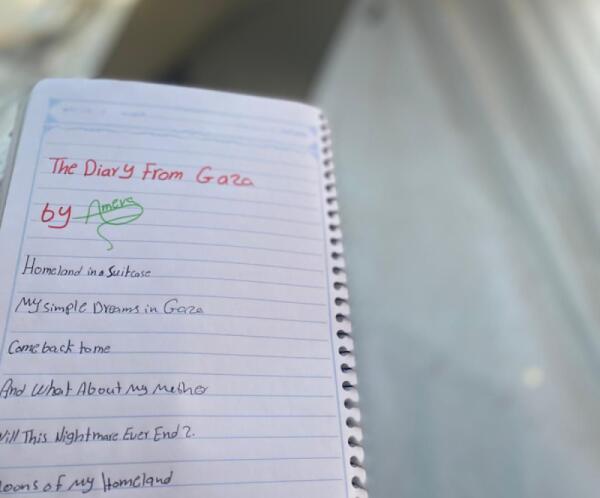 The Diary From Gaza
by Amera
Homeland in a Suitcase
My simple Dreams in Gaza
Come back to me
And What About My Mother
Will This Nightmare Ever End?
of My Homeland